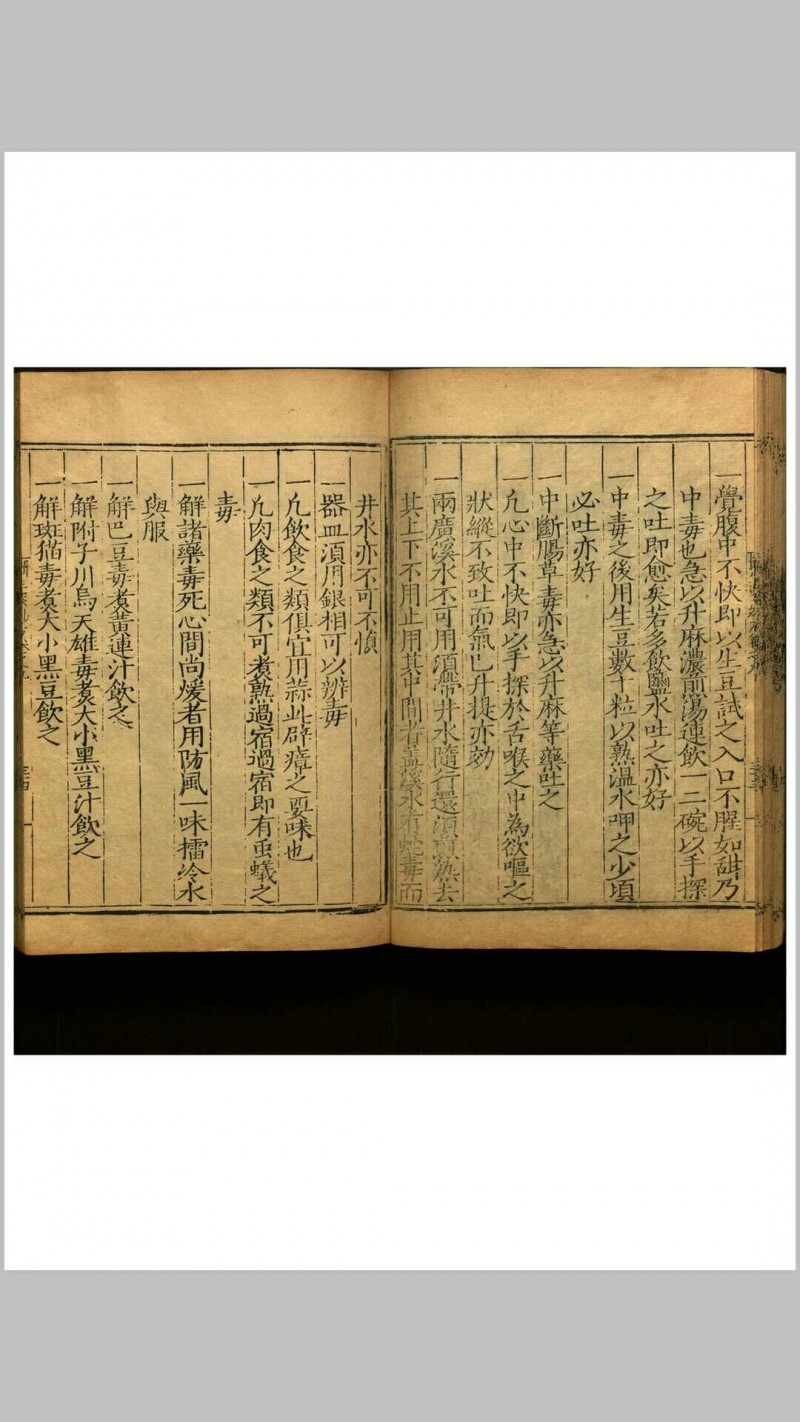 一覺腹中不快即以生豆試之入口不腥如甜乃
中毒也急以升麻濃煎蕩連飲一二碗以手探
之吐即愈矣若多飲鹽水吐之亦好
一中毒之後用生豆數十粒以熟温水呷之少頃
必吐亦好
一中斷腸草毒亦急以升麻等藥吐之
一凢心中不快即以手探於舌喉之中為欲嘔之
狀縱不致吐而氣已升提亦効
一兩廣溪水不可用須帶井水隨行還須煑熟去
其上下不用止用其中間者蓋溪水有蛇毒而
井水亦不可不慎
一器皿須用銀相可以辨毒
一凢飲食之類俱宜用蒜此辟瘴之要味也
一凢肉食之類不可煮熟過宿過宿即有虫蟻之
毒
一解諸藥毒死心間尚煖者用防風一味擂冷水
與服
一解巴豆毒煮黃連汁飲之
一解附子川烏天雄毒煮大小黑豆汁飲之
一解斑猫毒煮大小黑豆飲之